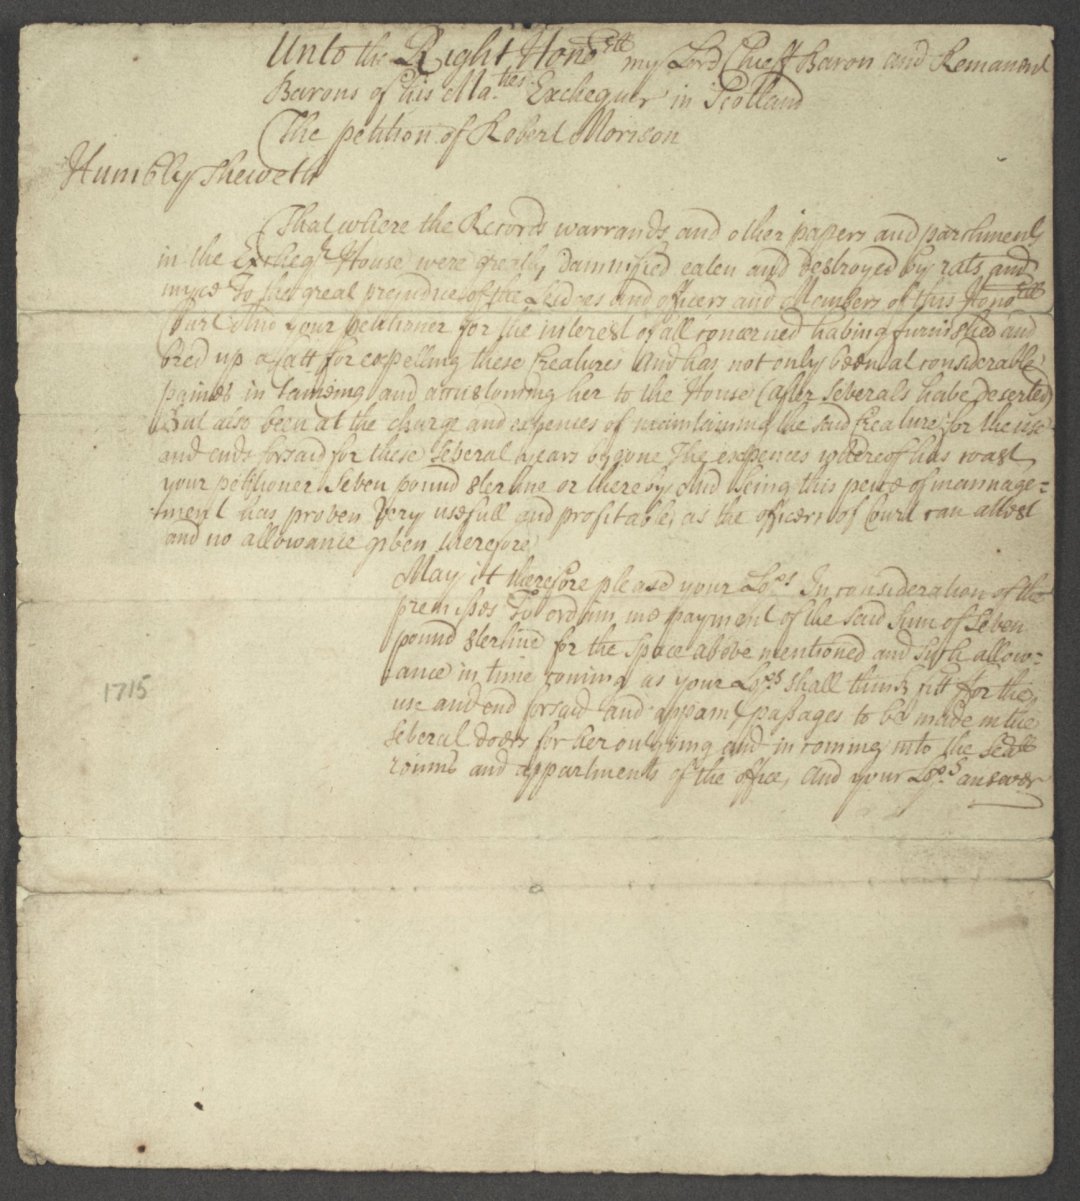 Unto the Right Honoble my Lord Chieff Baron and Remanent
Barons of his Maties Exchequer in Scotland
The petition of Robert Morison
Humbly Sheweth
That where the Records warrands and other papers and parchments
in the Excheqr House were greatly damnified eaten and destroyed by rats and
myce To the great prejudice of the Leidges and officers and Members of this Honoble
Court And your petitioner for the interest of all concerned having furnished and
bred up a Catt for expelling these Creatures And has not only been at considerable
paines in tameing and accustoming her to the House (after severals have deserted)
But also been at the charge and expences of maintaining the said Creature for the use
and ends forsaid for these several years bygone The expences whereof has coast
your petitioner Seven pound sterline or thereby And being this peice of mannage=
ment has proven very usefull and profitable as the officers of Court can attest
and no allowance given therefore
May it therefore please your Lops In consideration of the
premisses To ordain me payment of the said sum of Seven
pound sterline for the space above mentioned and such allow=
ance in time coming as your Lops shall think fitt for the
use and end forsaid and appoint passages to be made in the
several doors for her outgoing and incoming into the
roums and appartments of the office, And your Lops answer
1715